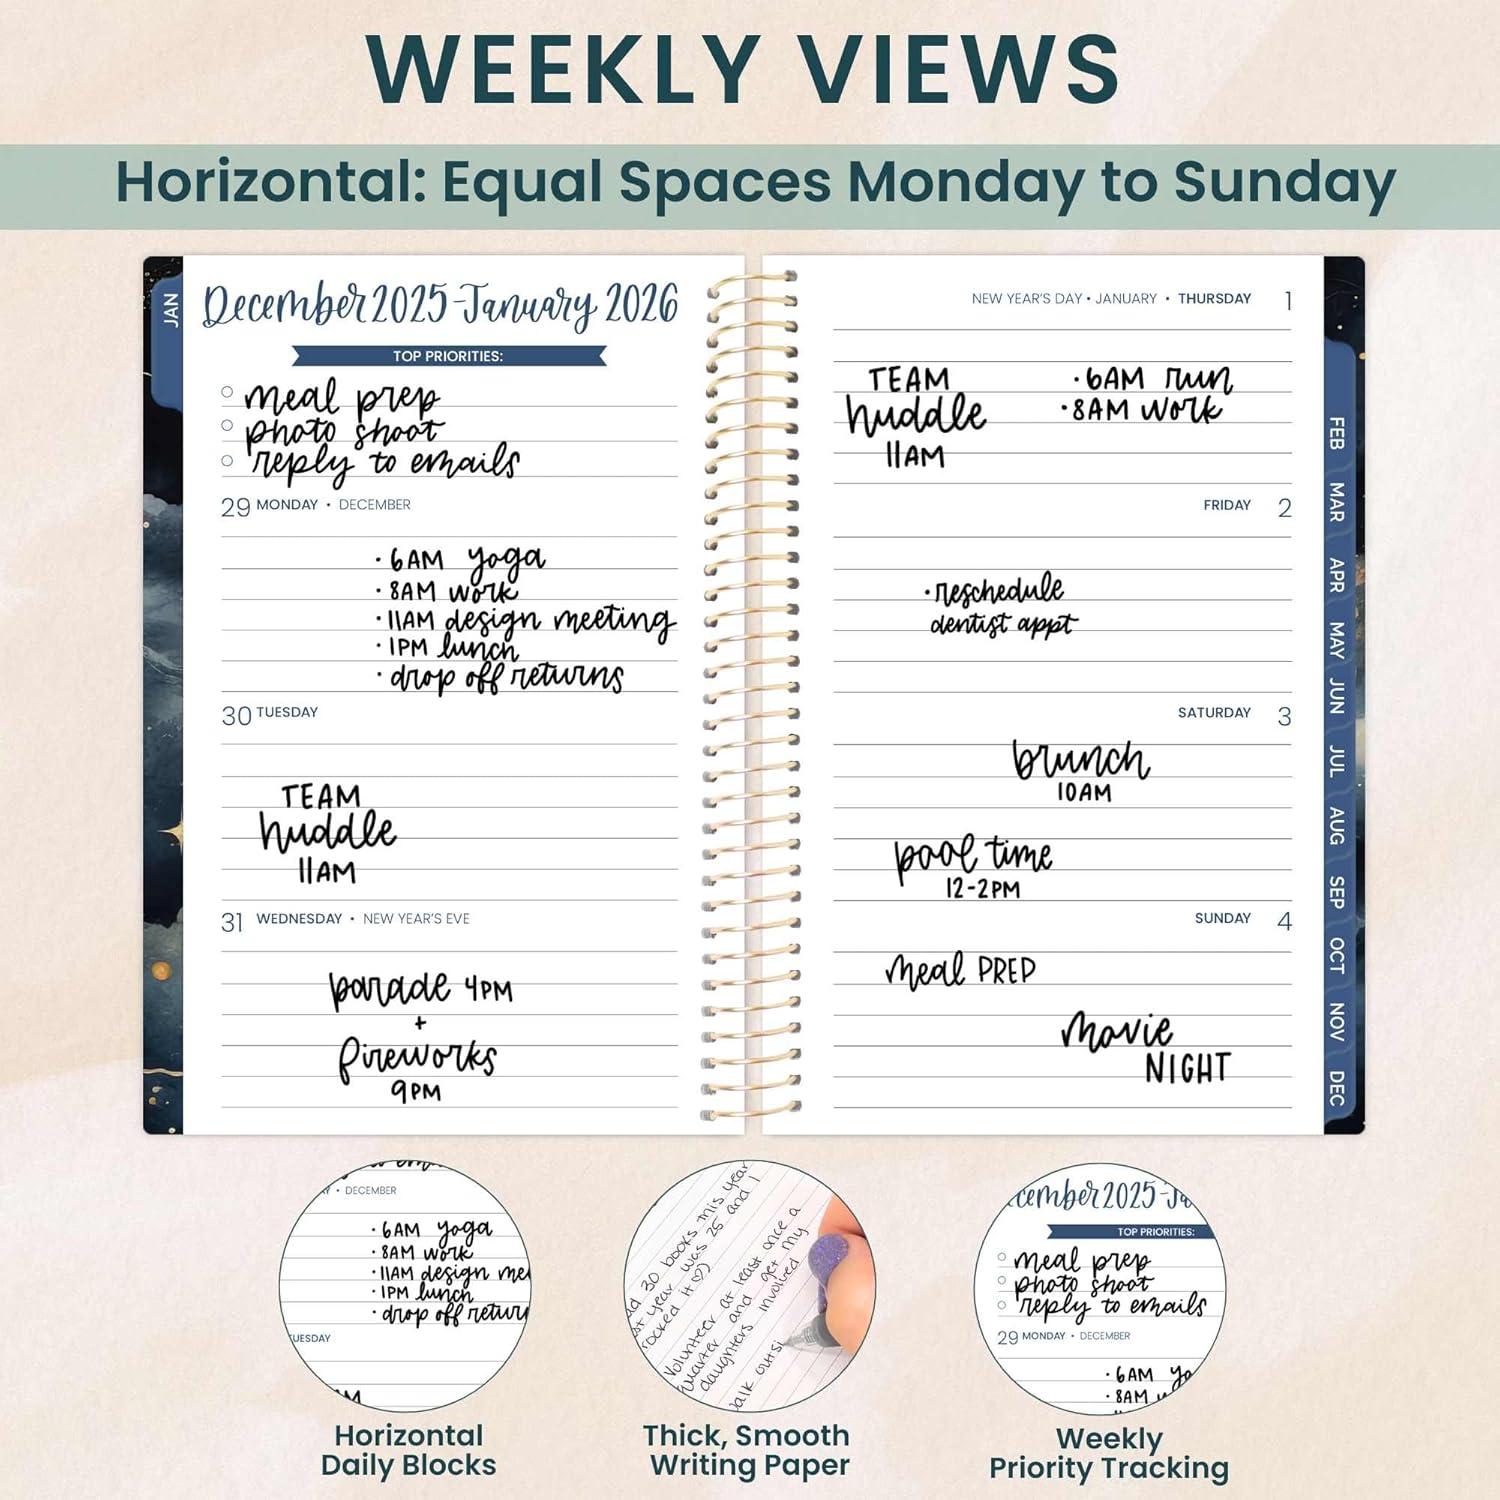 WEEKLY VIEWS
Horizontal: Equal Spaces Monday to Sunday
JAN
December 2025-January 2026
TOP PRIORITIES:
meal prep
photo shoot
reply to emails
29 MONDAY • DECEMBER
• 6AM yoga
• 8AM work
• 11AM design meeting
• 1PM lunch
• drop off returns
30 TUESDAY
TEAM
huddle
11AM
31 WEDNESDAY • NEW YEAR'S EVE
parade 4PM
+
fireworks
9PM
NEW YEAR'S DAY • JANUARY • THURSDAY 1
TEAM
huddle
11AM
• 6AM run
• 8AM work
FRIDAY 2
• reschedule
dentist appt
SATURDAY 3
brunch
10AM
pool time
12-2PM
SUNDAY 4
meal PREP
movie
NIGHT
FEB
MAR
APR
MAY
JUN
JUL
AUG
SEP
OCT
NOV
DEC
• DECEMBER
• 6AM yoga
• 8AM work
• 11AM design me
• 1PM lunch
• drop off retur
UESDAY
Horizontal
Daily Blocks
30 books this year
year was 25 and I
rocked it ♡)
Volunteer at least once a
quarter and get my
daughters involved
outsi
Thick, Smooth
Writing Paper
cember 2025-Ja
TOP PRIORITIES:
meal prep
photo shoot
reply to emails
29 MONDAY • DECEMBER
• 6AM yo
• 8AM
Weekly
Priority Tracking